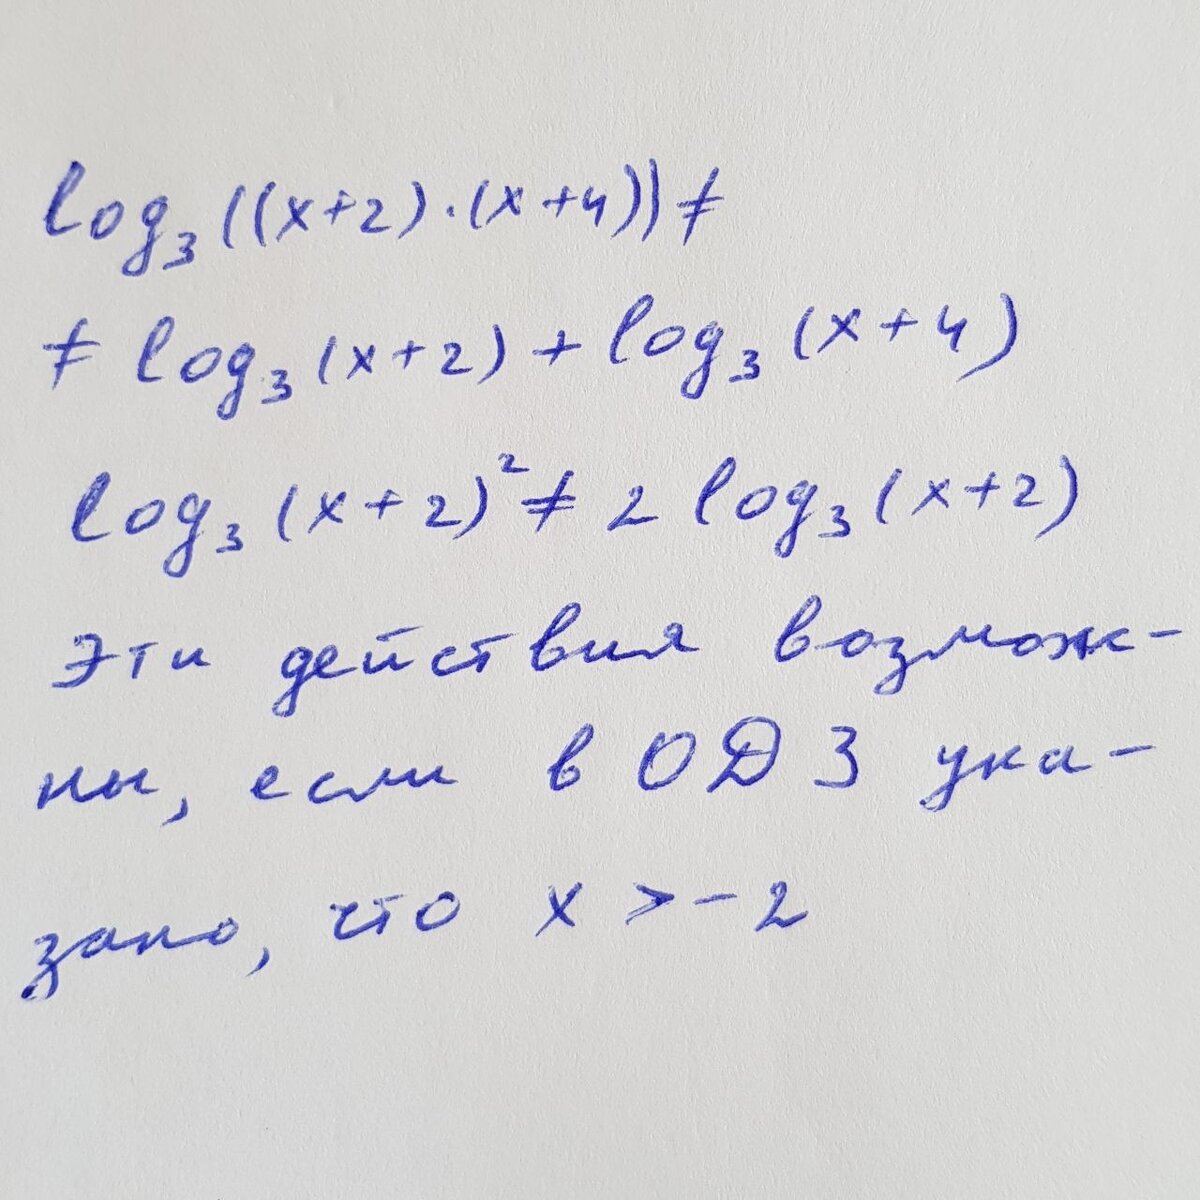 log₃((x+2)·(x+4)) ≠
≠ log₃(x+2) + log₃(x+4)
log₃(x+2)² ≠ 2 log₃(x+2)
Эти действия возмож-
ны, если в ОДЗ ука-
зано, что x > -2